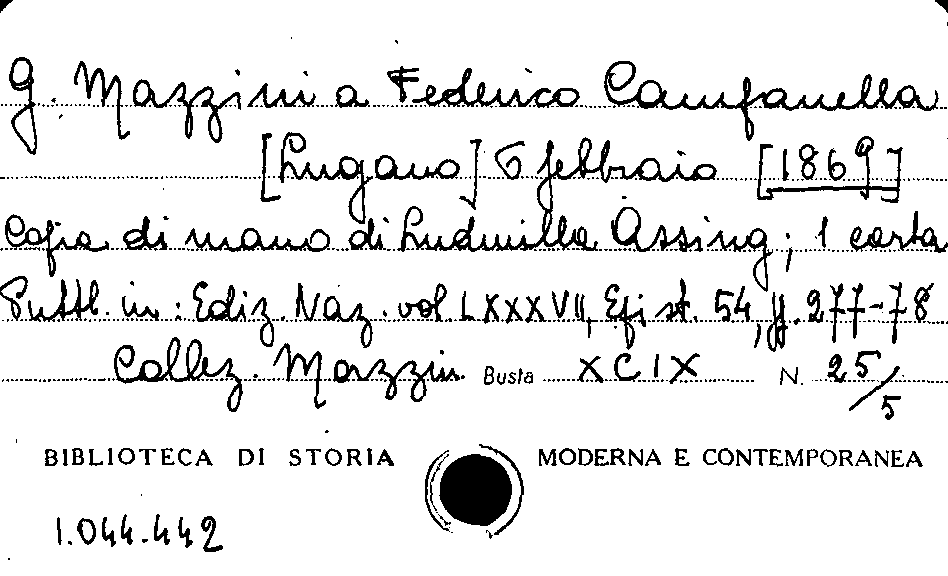 G. Mazzini a Federico Campanella
[Lugano] 6 febbraio [1869]
Copia di mano di Ludmilla Assing; 1 carta
Pubbl. in: Ediz. Naz. vol. LXXXVII, Epist. 54, pp. 277-78
Collez. Mazzini Busta XCIX N. 25/5
BIBLIOTECA DI STORIA MODERNA E CONTEMPORANEA
1.044.442